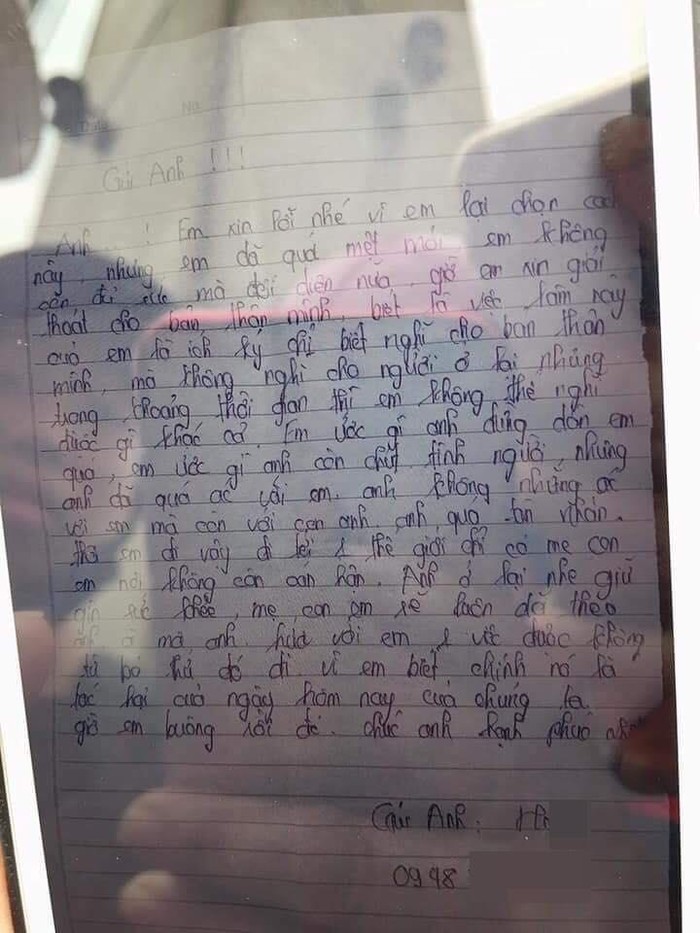 Gửi Anh !!!
Anh...! Em xin lỗi nhé vì em lại chọn
này, nhưng em đã quá mệt mỏi, em không
còn đủ sức mà đối diện nữa, giờ em xin giải
thoát cho bản thân mình, biết là việc làm này
của em là ích kỷ chỉ biết nghĩ cho bản thân
mình, mà không nghĩ cho người ở lại nhưng
trong khoảng thời gian thì em không thể nghĩ
được gì khác cả. Em ước gì anh đừng dồn em
quá, em ước gì anh còn chút tình người, nhưng
anh đã quá ác với em. anh không những ác
với em mà còn với con anh, anh quá tàn nhẫn.
em đi vậy đi lại 1 thế giới chỉ có mẹ con
em nơi không còn oán hận. Anh ở lại nhe giữ
gìn sức khỏe, mẹ con em sẽ luôn dõi theo
mà anh hứa với em 1 việc được không
từ bỏ thứ đó đi vì em biết chính nó là
tác hại của ngày hôm nay của chúng ta.
giờ em buông rồi đó. chúc anh hạnh phúc
Gửi Anh :
0948